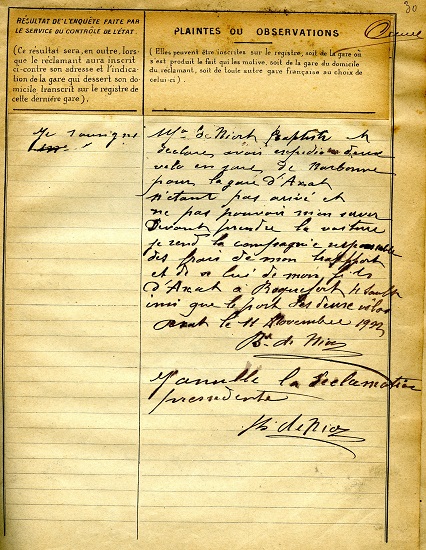 30
RÉSULTAT DE L'ENQUÊTE FAITE PAR
LE SERVICE DU CONTRÔLE DE L'ÉTAT.
(Ce résultat sera, en outre, lors-
que le réclamant aura inscrit
ci-contre son adresse et l'indica-
tion de la gare qui dessert son do-
micile transcrit sur le registre de
cette dernière gare).
PLAINTES OU OBSERVATIONS
(Elles peuvent être inscrites sur le registre, soit de la gare où
s'est produit le fait qui les motive, soit de la gare du domicile
du réclamant, soit de toute autre gare française au choix de
celui-ci.)
Je soussigné
Mr de Niort Baptiste
declare avoir expedier deux
velo en gare de Narbonne
pour la gare d'Axat
n'etant pas arrivé et
ne pas pouvoir m'en
Devant prendre la voiture
je rend la compagnie responsable
des frais de mon
et de celui de mon fils
d'Axat à Roquefort de Sault
insi que le port des deux vélos
Axat le 11 Novembre 1922
Bte de Niort
J'annulle la reclamation
précédente
B de Niort